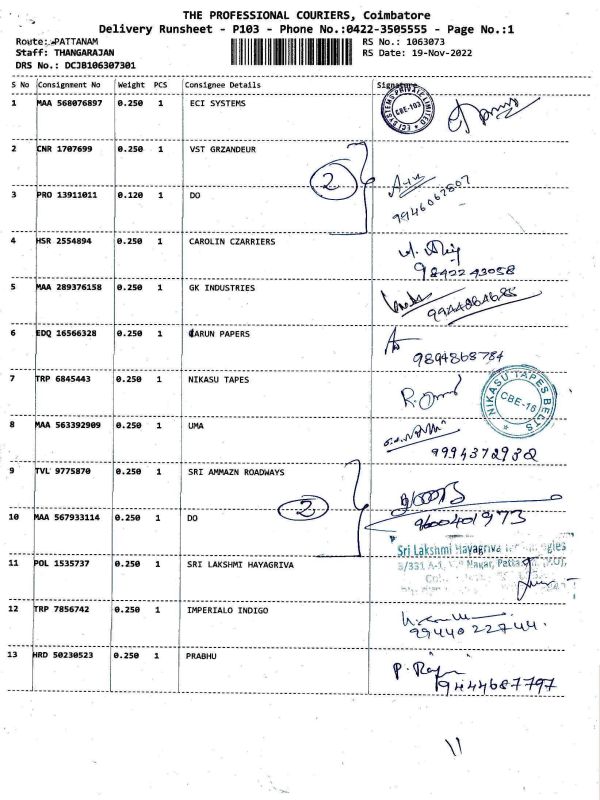 THE PROFESSIONAL COURIERS, Coimbatore
Delivery Runsheet - P103 - Phone No.:0422-3505555 - Page No.:1
Route: PATTANAM
Staff: THANGARAJAN
DRS No.: DCJB106307301
RS No.: 1063073
RS Date: 19-Nov-2022
S No Consignment No Weight PCS Consignee Details Signature
1 MAA 568076897 0.250 1 ECI SYSTEMS
ECI SYSTEMS PRIVATE LIMITED
CBE-103
2 CNR 1707699 0.250 1 VST GRZANDEUR
2
3 PRO 13911011 0.120 1 DO
9946067807
4 HSR 2554894 0.250 1 CAROLIN CZARRIERS
9842243058
5 MAA 289376158 0.250 1 GK INDUSTRIES
6 EDQ 16566328 0.250 1 ARUN PAPERS
9894868784
7 TRP 6845443 0.250 1 NIKASU TAPES
NIKASU TAPES BELTS
CBE-16
8 MAA 563392909 0.250 1 UMA
9994372930
9 TVL 9775870 0.250 1 SRI AMMAZN ROADWAYS
2
10 MAA 567933114 0.250 1 DO
9600401973
11 POL 1535737 0.250 1 SRI LAKSHMI HAYAGRIVA
Sri Lakshmi Hayagriva
3/331 A-1, Nagar,
12 TRP 7856742 0.250 1 IMPERIALO INDIGO
9944022744.
13 HRD 50230523 0.250 1 PRABHU
9444687797
11